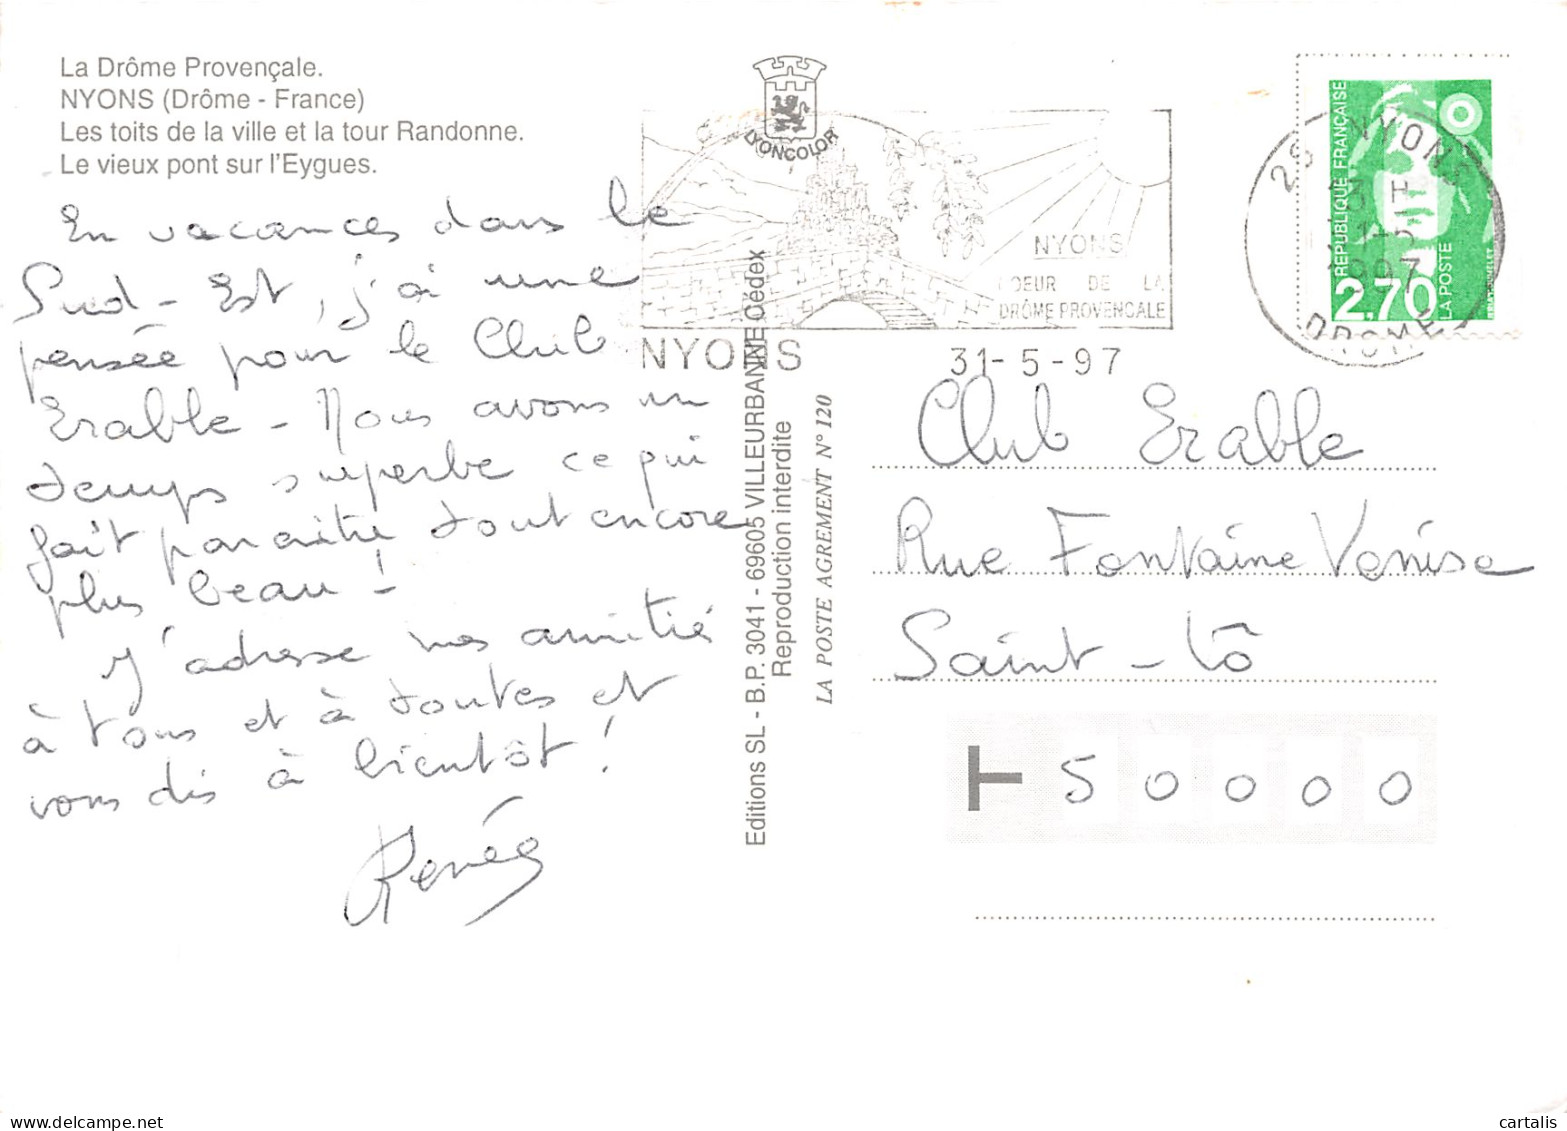 La Drôme Provençale.
NYONS (Drôme - France)
Les toits de la ville et la tour Randonne.
Le vieux pont sur l'Eygues.
En vacances dans le
Sud-Est, j'ai une
pensée pour le Club
Erable - Nous avons un
temps superbe ce qui
fait paraitre tout encore
plus beau !
J'adresse mes amitié
à tous et à toutes et
vous dis à bientôt !
Renée
LYONCOLOR
NYONS
COEUR DE LA
DRÔME PROVENCALE
NYONS
31-5-97
Editions SL - B.P. 3041 - 69605 VILLEURBANNE Cédex
Reproduction interdite
LA POSTE AGREMENT N° 120
REPUBLIQUE FRANÇAISE
2,70
LA POSTE
26 NYONS
1997
DROME
Club Erable
Rue Fontaine Venise
Saint-Lô
50000
delcampe.net
cartalis